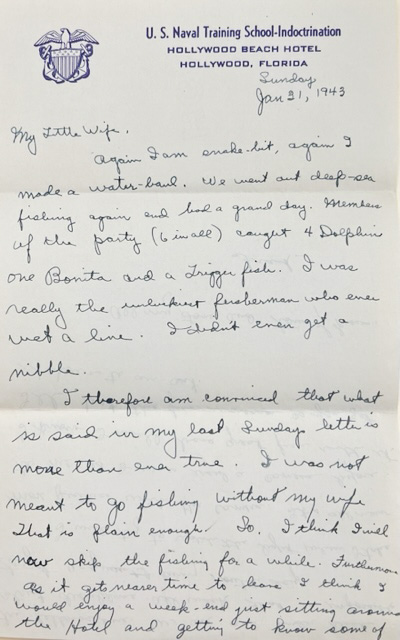 U. S. Naval Training School-Indoctrination
HOLLYWOOD BEACH HOTEL
HOLLYWOOD, FLORIDA
Sunday
Jan 31, 1943
My Little Wife,
Again I am snake-bit, again I
made a water-haul. We went out deep-sea
fishing again and had a grand day. Members
of the party (6 in all) caught 4 Dolphin
one Bonita and a Trigger fish. I was
really the unluckiest fisherman who ever
wet a line. I didn't even get a
nibble.
I therefore am convinced that what
is said in my last Sunday letter is
more than ever true. I was not
meant to go fishing without my wife
That is plain enough. So, I think I will
now skip the fishing for a while. Furthermore
as it gets nearer time to leave I think I
would enjoy a week-end just sitting around
the Hotel and getting to know some of